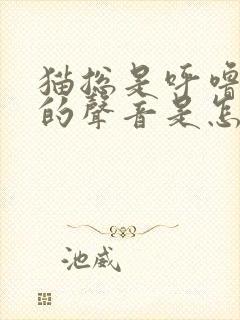 猫总是呼噜
的聲音是怎
池威